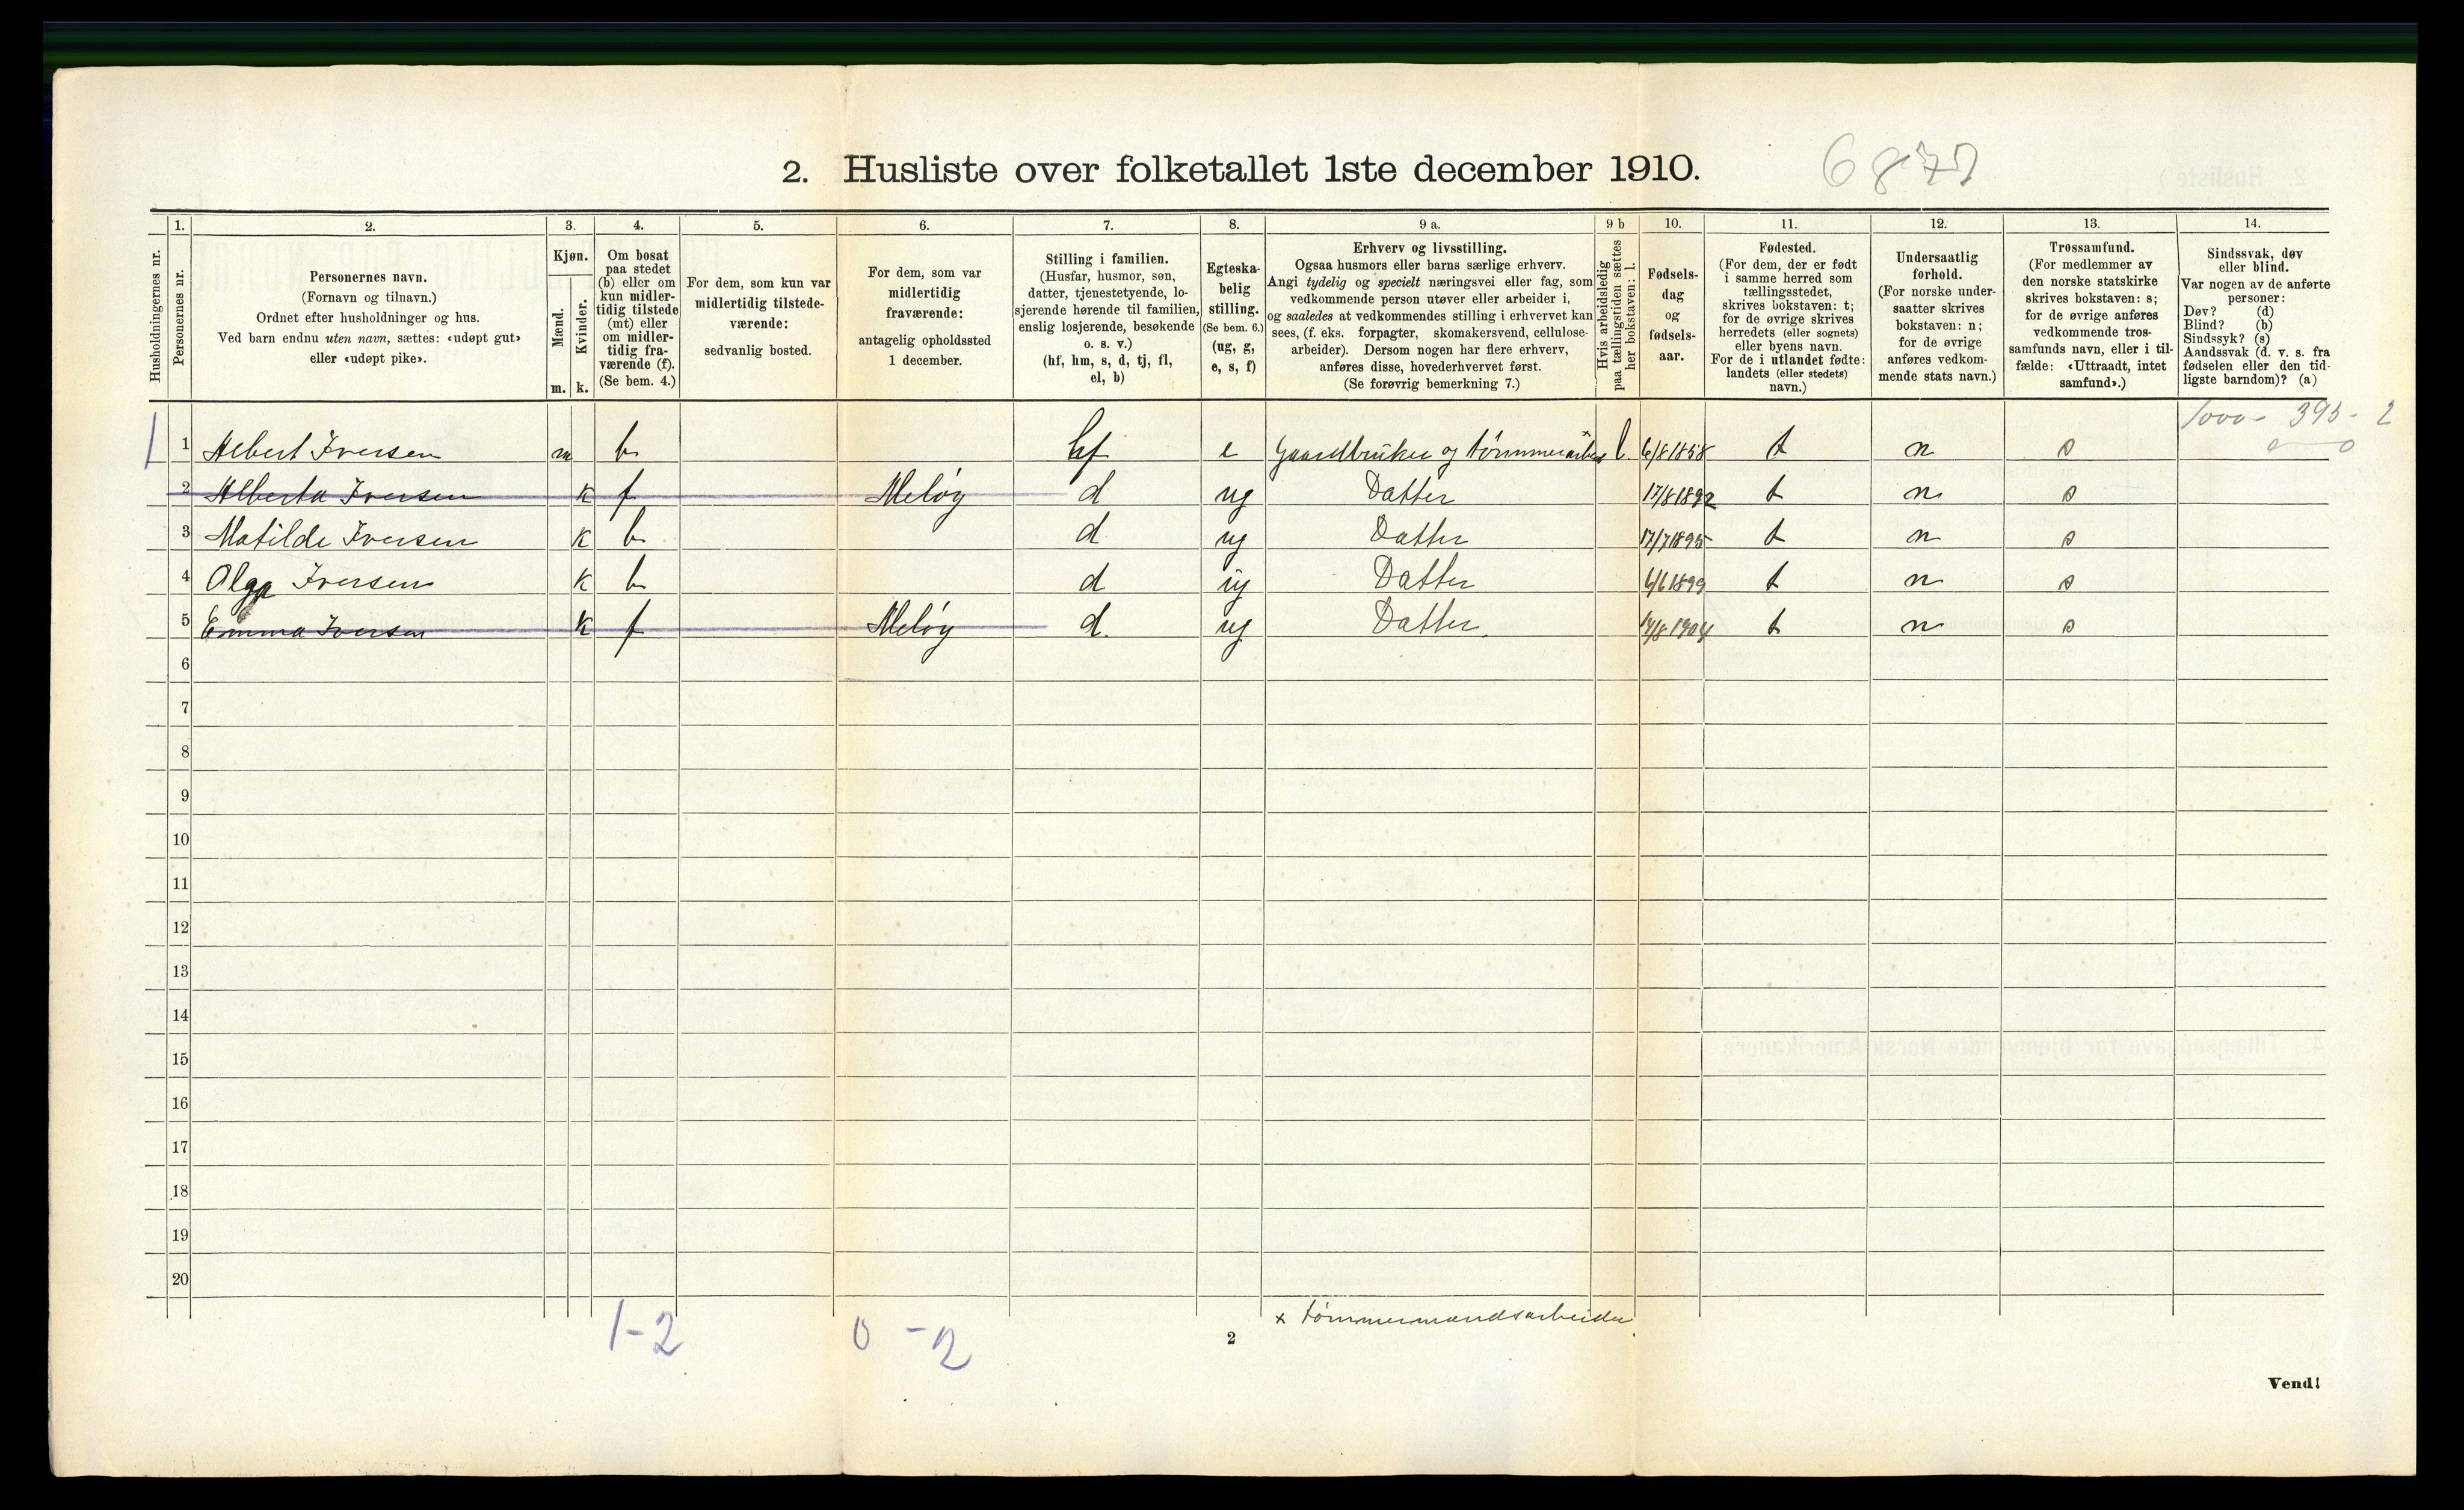 2. Husliste over folketallet 1ste december 1910.
1. 2. 3. 4. 5. 6. 7. 8. 9 a. 9 b 10. 11. 12. 13. 14.
Husholdningernes nr.
Personernes nr.
Personernes navn.
(Fornavn og tilnavn.)
Ordnet efter husholdninger og hus.
Ved barn endnu uten navn, sættes: «udøpt gut»
eller «udøpt pike».
Kjøn.
Mænd.
Kvinder.
m. k.
Om bosat
paa stedet
(b) eller om
kun midler-
tidig tilstede
(mt) eller
om midler-
tidig fra-
værende (f).
(Se bem. 4.)
For dem, som kun var
midlertidig tilstede-
værende:
sedvanlig bosted.
For dem, som var
midlertidig
fraværende:
antagelig opholdssted
1 december.
Stilling i familien.
(Husfar, husmor, søn,
datter, tjenestetyende, lo-
sjerende hørende til familien,
enslig losjerende, besøkende
o. s. v.)
(hf, hm, s, d, tj, fl,
el, b)
Egteska-
belig
stilling.
(Se bem. 6.)
(ug, g,
e, s, f)
Erhverv og livsstilling.
Ogsaa husmors eller barns særlige erhverv.
Angi tydelig og specielt næringsvei eller fag, som
vedkommende person utøver eller arbeider i,
og saaledes at vedkommendes stilling i erhvervet kan
sees, (f. eks. forpagter, skomakersvend, cellulose-
arbeider). Dersom nogen har flere erhverv,
anføres disse, hovederhvervet først.
(Se forøvrig bemerkning 7.)
Hvis arbeidsledig
paa tællingstiden sættes
her bokstaven: l.
Fødsels-
dag
og
fødsels-
aar.
Fødested.
(For dem, der er født
i samme herred som
tællingsstedet,
skrives bokstaven: t;
for de øvrige skrives
herredets (eller sognets)
eller byens navn.
For de i utlandet fødte:
landets (eller stedets)
navn.)
Undersaatlig
forhold.
(For norske under-
saatter skrives
bokstaven: n;
for de øvrige
anføres vedkom-
mende stats navn.)
Trossamfund.
(For medlemmer av
den norske statskirke
skrives bokstaven: s;
for de øvrige anføres
vedkommende tros-
samfunds navn, eller i til-
fælde: «Uttraadt, intet
samfund».)
Sindssvak, døv
eller blind.
Var nogen av de anførte
personer:
Døv? (d)
Blind? (b)
Sindssyk? (s)
Aandssvak (d. v. s. fra
fødselen eller den tid-
ligste barndom)? (a)
1000 - 395 - 2
1 1 Albert Iversen m b hf e Gaardbruker og tømmerarbei × l. 6/8 1858 t n s
2 Alberta Iversen k f Meløy d ug Datter 17/8 1892 t n s
3 Matilde Iversen k b d ug Datter 17/7 1895 t n s
4 Olga Iversen k b d ug Datter 6/6 1899 t n s
5 Emma Iversen k f Meløy d. ug Datter. 14/8 1904 t n s
6
7
8
9
10
11
12
13
14
15
16
17
18
19
20
× tømmermandsarbeider
1-2 0 - 2
2
Vend!